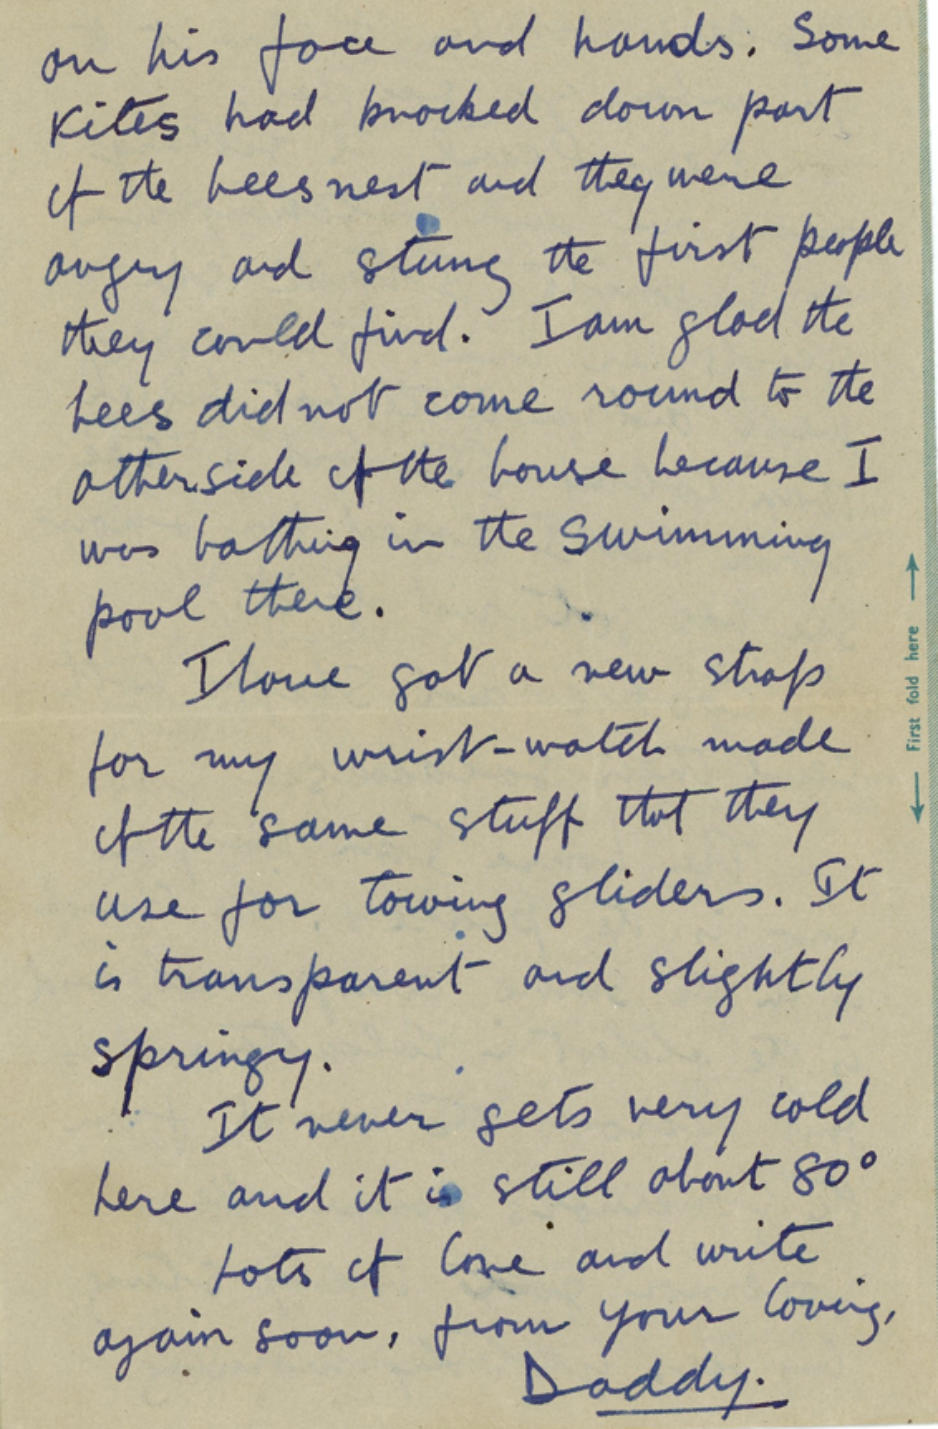 on his face and hands. Some
Kites had knocked down part
of the bees nest and they were
angry and stung the first people
they could find. I am glad the
bees did not come round to the
other side of the house because I
was bathing in the swimming
pool there.
I have got a new strap
for my wrist-watch made
of the same stuff that they
use for towing gliders. It
is transparent and slightly
springy.
It never gets very cold
here and it is still about 80°
Lots of love and write
again soon, from your loving,
Daddy.
First fold here